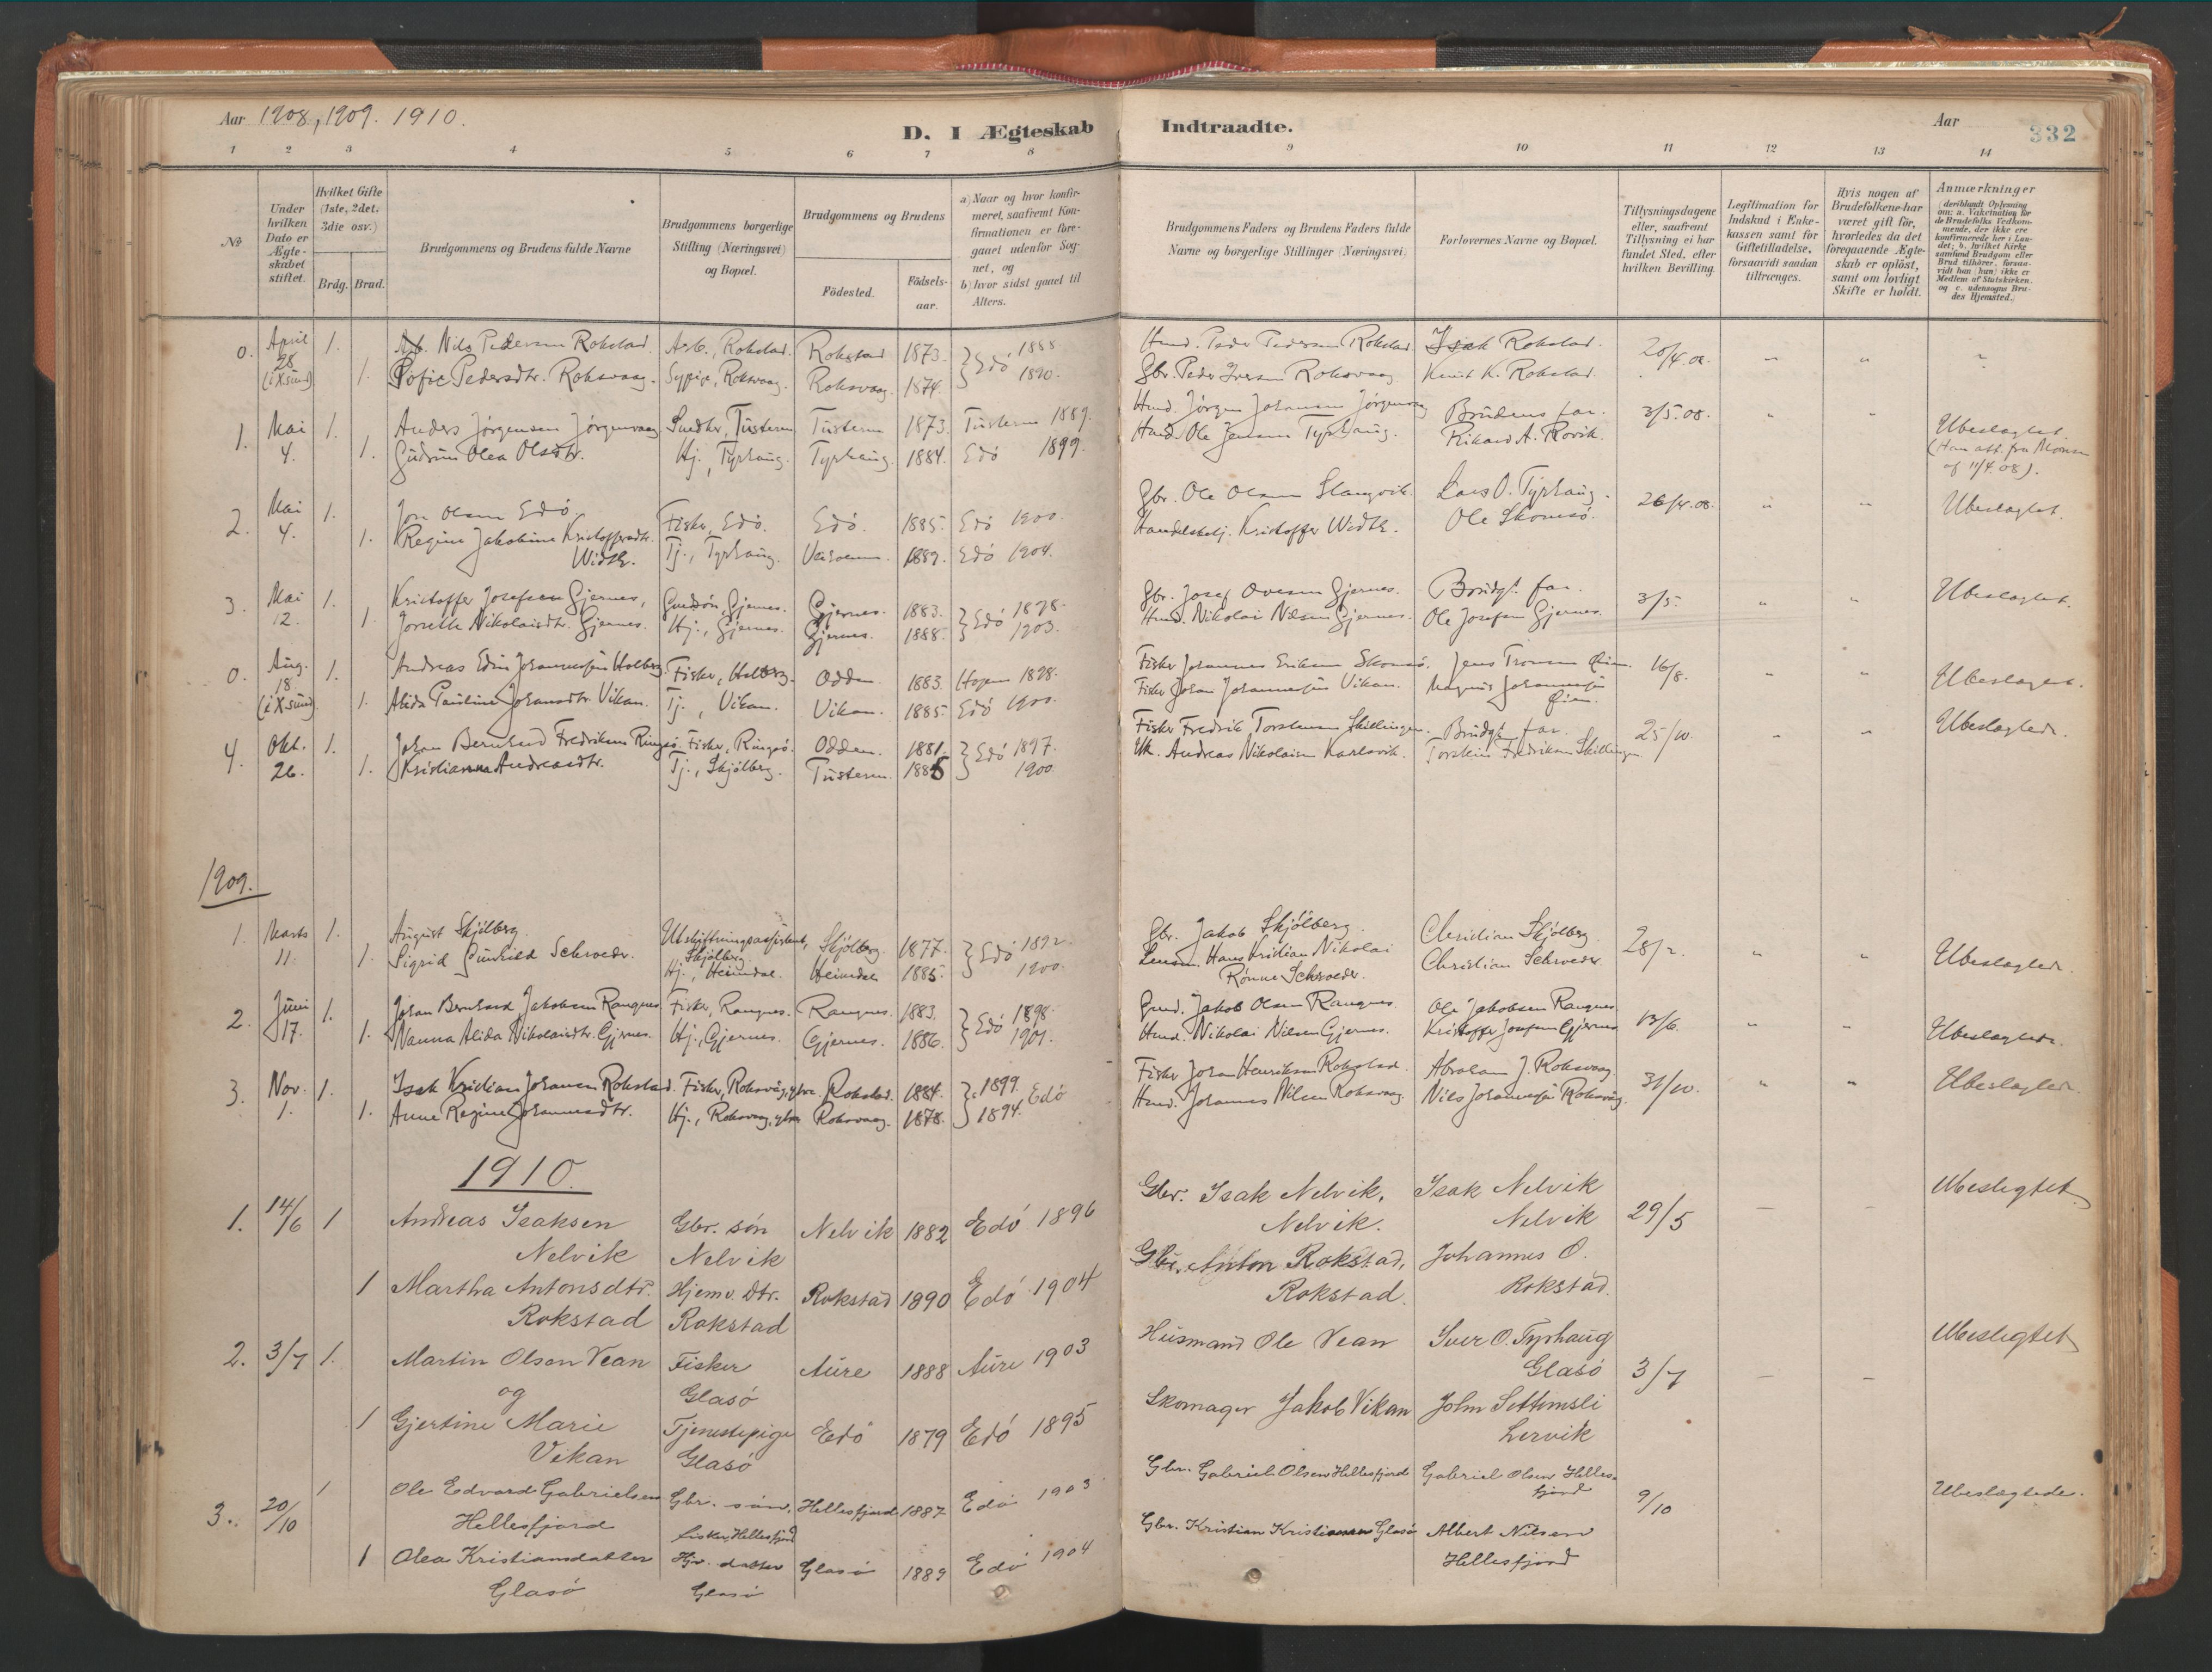 Aar 1908, 1909. 1910.
D. I Ægteskab Indtraadte.
Aar
332
1 2 3 4 5 6 7 8 9 10 11 12 13 14
№
Under hvilken Dato er Ægteskabet stiftet.
Hvilket Gifte (1ste, 2det, 3die osv.)
Brdg. Brud.
Brudgommens og Brudens fulde Navne
Brudgommens borgerlige Stilling (Næringsvei) og Bopæl.
Brudgommens og Brudens
Födested.
Födselsaar.
a) Naar og hvor konfirmeret, saafremt Konfirmationen er foregaaet udenfor Sognet, og
b) hvor sidst gaaet til Alters.
Brudgommens Faders og Brudens Faders fulde Navne og borgerlige Stillinger (Næringsvei)
Forlovernes Navne og Bopæl.
Tillysningsdagene eller, saafremt Tillysning ei har fundet Sted, efter hvilken Bevilling.
Legitimation for Indskud i Enkekassen samt for Giftetilladelse, forsaavidt saadan tiltrænges.
Hvis nogen af Brudefolkene har været gift för, hvorledes da det foregaaende Ægteskab er oplöst, samt om lovligt Skifte er holdt.
Anmærkninger (deriblandt Oplysning om: a. Vakcination for de Brudefolks Vedkommende, der ikke ere konfirmerede her i Landet; b. hvilket Kirkesamfund Brudgom eller Brud tilhörer, forsaavidt han (hun) ikke er Medlem af Statskirken, og c. udensogns Brudes Hjemsted.)
0. April 28 (i Xsund) 1. Nils Pedersen Rokstad. Arb., Rokstad. Rokstad 1873. Edö 1888. Hmd. Peder Pedersen Rokstad Isak Rokstad. 20/4.08. " " "
1. Sofie Pedersdtr. Roksvaag. Sypige, Roksvaag. Roksvaag 1874. 1890. Gbr. Peder Iversen Roksvaag Knut K. Rokstad.
1. Mai 4. 1. Anders Jørgensen Jørgenvaag Snedker, Tusteren Tusteren 1873. Tusteren 1889. Hmd. Jørgen Johansen Jørgenvaag Brudens far. 3/5.08. " " Ubeslagtet.
1. Gudrun Olea Olsdtr. Hj., Tyrhaug. Tyrhaug 1884. Edö 1899. Hmd. Ole Jensen Tyrhaug. Rikard A. Rovik. (Han att. fra
af 11/4 08).
2. Mai 4. 1. Jon Olsen Edö Fisker, Edö. Edö. 1885. Edö 1900. Gbr. Ole Olsen Slangvik. Lars O. Tyrhaug. 26/4.08. " " Ubeslagtet.
1. Regine Jakobine Kristoffersdtr. Width. Tj., Tyrhaug. 1889. Edö 1904. Handelsbetj. Kristoffer Width. Ole Skomsö.
3. Mai 12. 1. Kristoffer Josefsen Gjernes, Gaardsön, Gjernes. Gjernes. 1883. Edö 1898. Gbr. Josef Ovesen Gjernes. Brudgs. far. 3/5. " " Ubeslagtet.
1. Nikolaisdtr. Gjernes. Hj., Gjernes. Gjernes. 1888. 1903. Hmd. Nikolai Nilsen Gjernes. Ole Josefsen Gjernes.
0. Aug. 18. (i Xsund) 1. Andreas Edin Johannessen Holberg. Fisker, Holberg. Odden. 1883. Hopen 1898. Fisker Johannes Eriksen Skomsö. Jens Tronsen Öien. 16/8. " " Ubeslagtet.
1. Alida Pauline Johansdtr. Vikan. Tj., Vikan. Vikan. 1885. Edö 1900. Fisker Johan Johannessen Vikan. Magnus Johannessen Öien.
4. Okt. 26. 1. Johan Bernhard Fredriksen Ringsö. Fisker, Ringsö. Odden. 1881. Edö 1897. Fisker Fredrik Torstensen Skillingen. Brudgs. far. 25/10. " " Ubeslagtede.
1. Kristianna Andreasdtr. Tj., Skjölberg. Tusteren. 1885 1900. Andreas Nikolaisen Karlsvik. Torstein Fredriksen Skillingen
1909.
1. Marts 11. 1. August Skjölberg. Utskiftningsassistent, Skjölberg Skjölberg. 1877. Edö 1892. Gbr. Jakob Skjölberg. Christian Skjölberg 28/2. " " Ubeslagtede.
1. Sigrid Gunhild Schroeder. Hj., Heimdal. Heimdal 1885. 1900. Lensm. Hans Kristian Nikolai Rønne Schroeder. Christian Schroeder
2. Juni 17. 1. Johan Bernhard Jakobsen Rangnes Fisker, Rangnes. Rangnes. 1883. Edö 1898. Gmd. Jakob Olsen Rangnes. Ole Jakobsen Rangnes 13/6. " " Ubeslagtede.
1. Nanna Alida Nikolaisdtr. Gjernes. Hj., Gjernes. Gjernes. 1886. 1901. Hmd. Nikolai Nilsen Gjernes. Kristoffer Josefsen Gjernes
3. Nov. 1. 1. Isak Kristian Johansen Rokstad. Fisker, Roksvåg, ytre Rokstad. 1884. 1899. Edö Fisker Johan Henriksen Rokstad. Abraham J. Roksvaag. 31/10. " " Ubeslagtede.
1. Anne Regine Johannesdtr. Hj., Roksvaag, ytre Roksvaag. 1878. 1894. Hmd. Johannes Nilsen Roksvaag. Nils Johannessen Roksvåg.
1910.
1. 14/6 1 Andreas Isaksen Nelvik Gbr. sön Nelvik Nelvik 1882 Edö 1896 Gbr. Isak Nelvik, Nelvik. Isak Nelvik Nelvik 29/5 — — Ubeslegtet
1 Martha Antonsdtr. Rokstad Hjemv. dtr. Rokstad Rokstad 1890 Edö 1904 Gbr. Anton Rokstad, Rokstad. Johannes O. Rokstad.
2. 3/7 1. Martin Olsen Vean Fisker Glasö Aure 1888 Aure 1903 Husmand Ole Vean Iver O. Tyrhaug Glasö 3/7 — — Ubeslegtet
og
1 Gjertine Marie Vikan Tjenestepige Glasö Edö 1879 Edö 1895 Skomager Jakob Vikan John Settemsli Lervik
3. 20/10 1 Ole Edvard Gabrielsen Hellesfjord Gbr. sön, fisker, Hellesfjord Hellesfjord 1887 Edö 1903 Gbr. Gabriel Olsen Hellesfjord Gabriel Olsen Hellesfjord 9/10 Ubeslagtede.
1 Olea Kristiansdatter Glasö Hjv. datter Glasö Glasö 1889 Edö 1904 Gbr. Kristian Kristiansen Glasö Albert Nilsen Hellesfjord